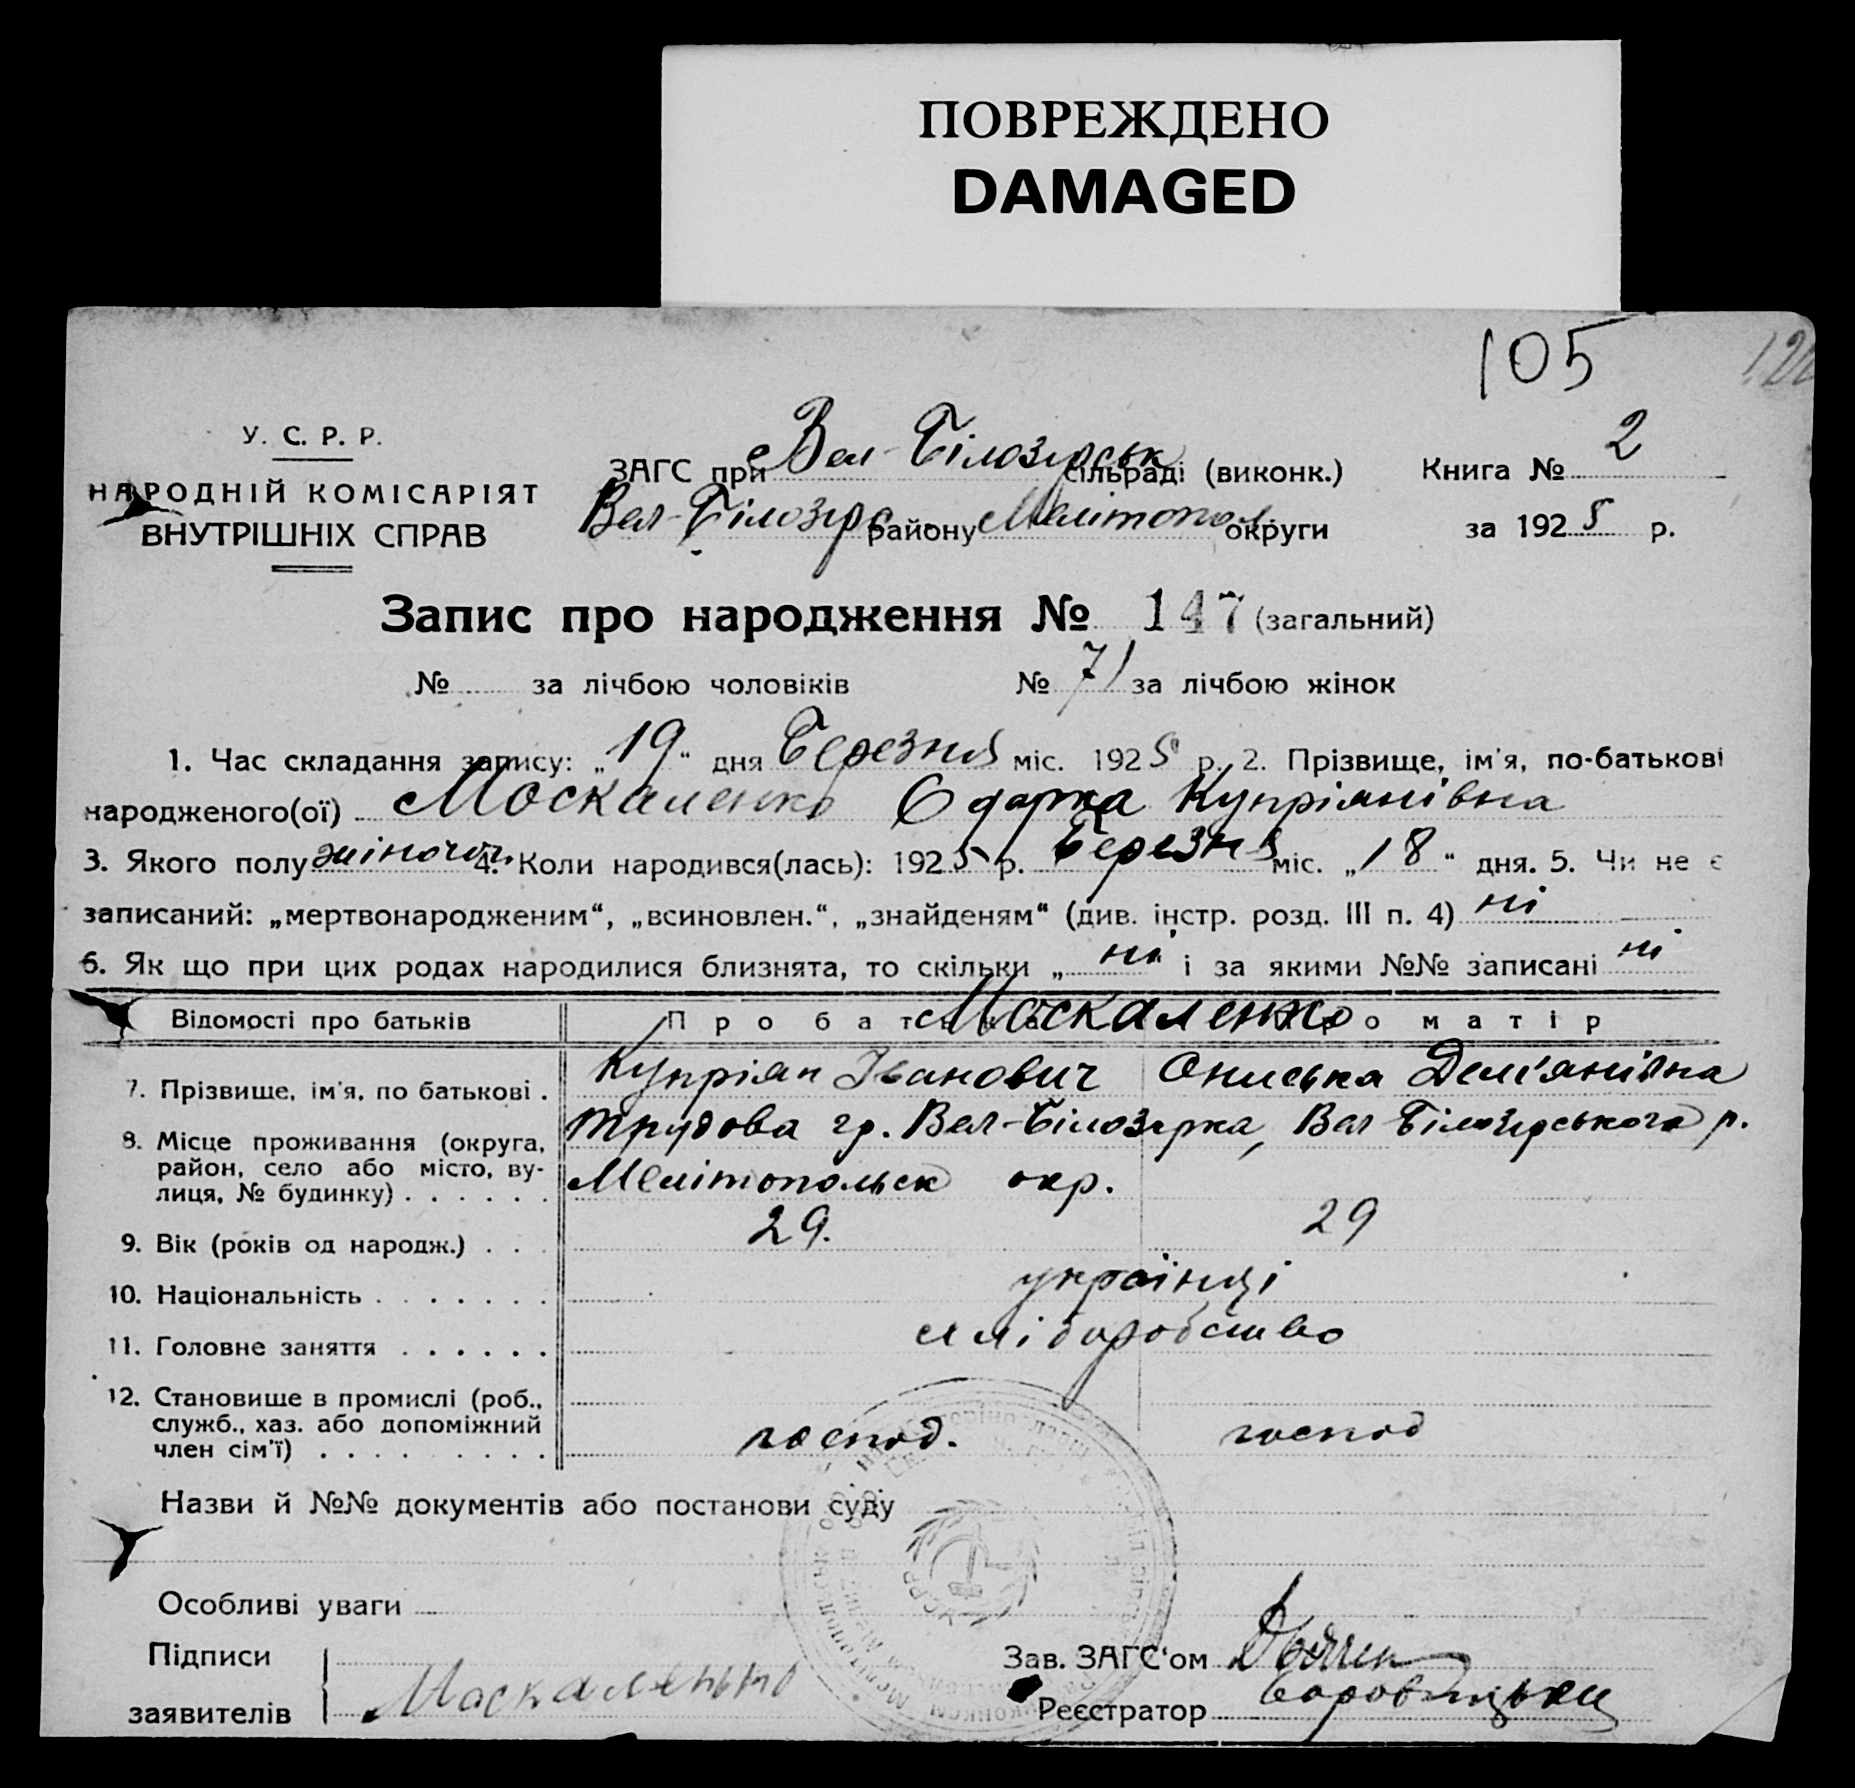 ПОВРЕЖДЕНО
DAMAGED
105
У. С. Р. Р.
НАРОДНІЙ КОМІСАРІЯТ
ВНУТРІШНІХ СПРАВ
ЗАГС при Вел-Білозірськ сільраді (виконк.) Книга № 2
Вел-Білозірс району Мелітопол. округи за 1925 р.
Запис про народження № 147 (загальний)
№ за лічбою чоловіків № 71 за лічбою жінок
1. Час складання запису: „19“ дня Березня міс. 1925 р. 2. Прізвище, ім'я, по-батькові
народженого(ої) Москаленко Одарка Купріянівна
3. Якого полу жіночої. 4. Коли народився(лась): 1925 р. Березня міс. „18“ дня. 5. Чи не є
записаний: „мертвонародженим“, „всиновлен.“, „знайденям“ (див. інстр. розд. III п. 4) ні
6. Як що при цих родах народилися близнята, то скільки „ні“ і за якими №№ записані ні
Відомості про батьків Про батька Про матір
Москаленко
7. Прізвище, ім'я, по батькові . Купріян Іванович Ониська Дем'янівна
8. Місце проживання (округа, район, село або місто, ву-
лиця, № будинку) . . . . . .
Трудова гр. Вел-Білозірка, Вел Білозірського р.
Мелітопольск окр.
9. Вік (років од народж.) . . . 29. 29
10. Національність . . . . . . . українці
11. Головне заняття . . . . . . хліборобство
12. Становище в промислі (роб.,
служб., хаз. або допоміжний
член сім'ї) . . . . . . . . . господ. господ
Назви й №№ документів або постанови суду
Особливі уваги
Підписи
заявителів Москаленко
Зав. ЗАГС'ом
Реєстратор
УСРР